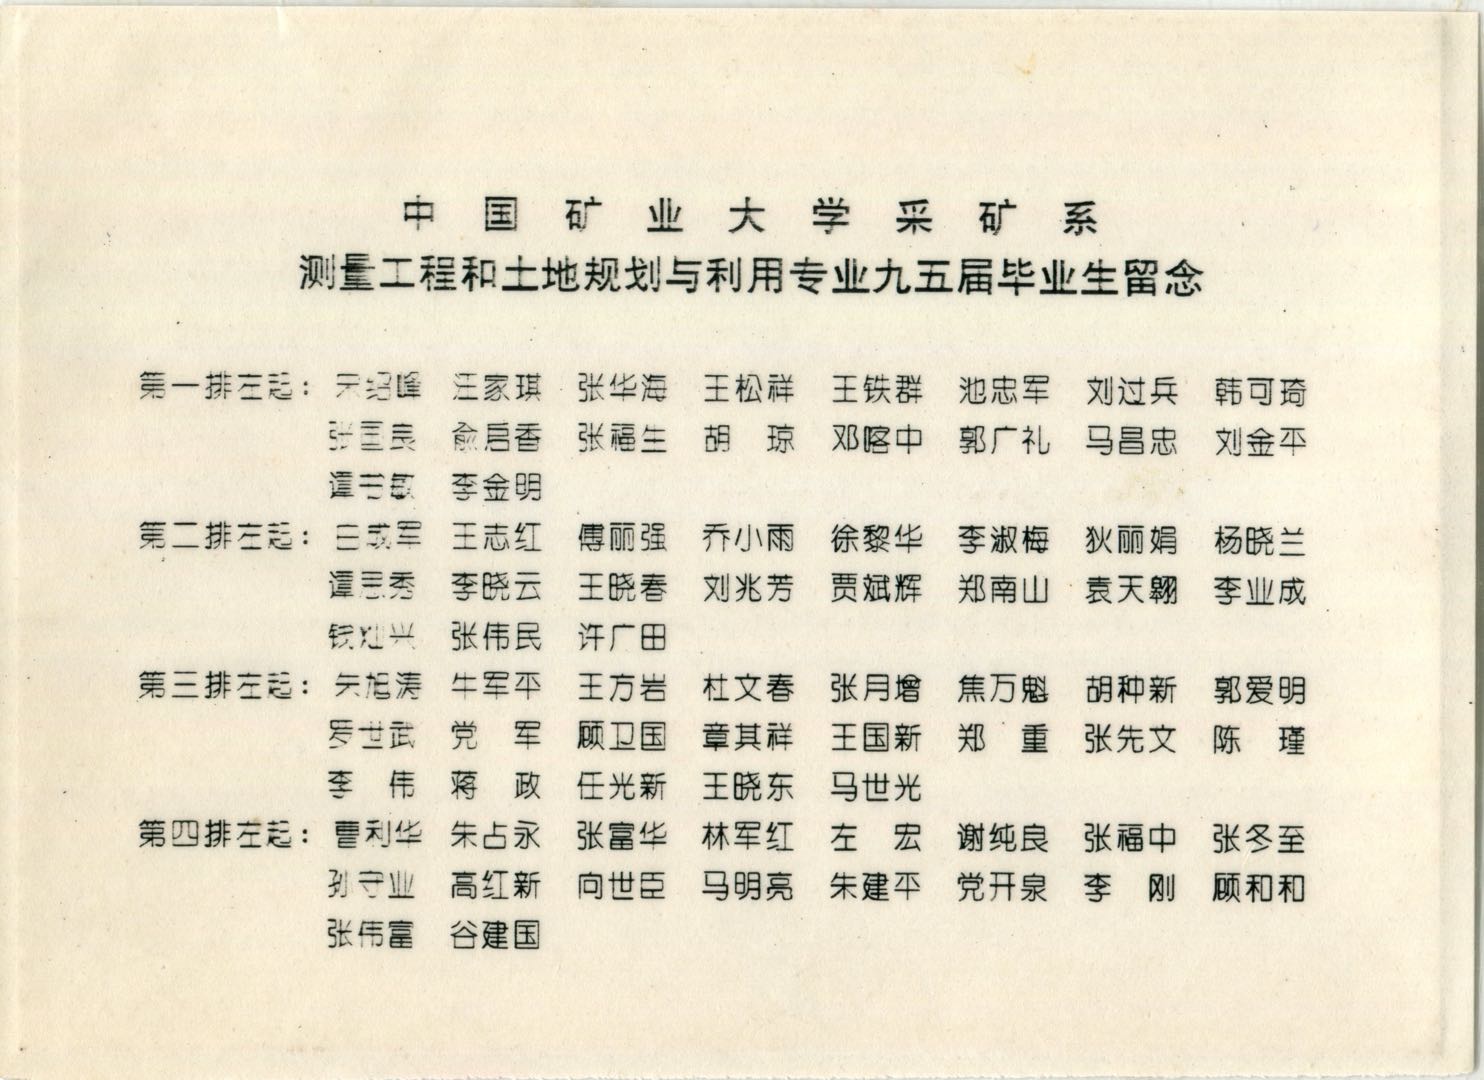 中国矿业大学采矿系
测量工程和土地规划与利用专业九五届毕业生留念
第一排左起：宋绍峰 汪家琪 张华海 王松祥 王铁群 池忠军 刘过兵 韩可琦
张国良 俞启香 张福生 胡琼 邓喀中 郭广礼 马昌忠 刘金平
李金明
第二排左起：白成军 王志红 傅丽强 乔小雨 徐黎华 李淑梅 狄丽娟 杨晓兰
谭思秀 李晓云 王晓春 刘兆芳 贾斌辉 郑南山 袁天翱 李业成
钱灿兴 张伟民 许广田
第三排左起：朱旭涛 牛军平 王方岩 杜文春 张月增 焦万魁 胡种新 郭爱明
罗世武 党军 顾卫国 章其祥 王国新 郑重 张先文 陈瑾
李伟 蒋政 任光新 王晓东 马世光
第四排左起：曹利华 朱占永 张富华 林军红 左宏 谢纯良 张福中 张冬至
孙守业 高红新 向世臣 马明亮 朱建平 党开泉 李刚 顾和和
张伟富 谷建国